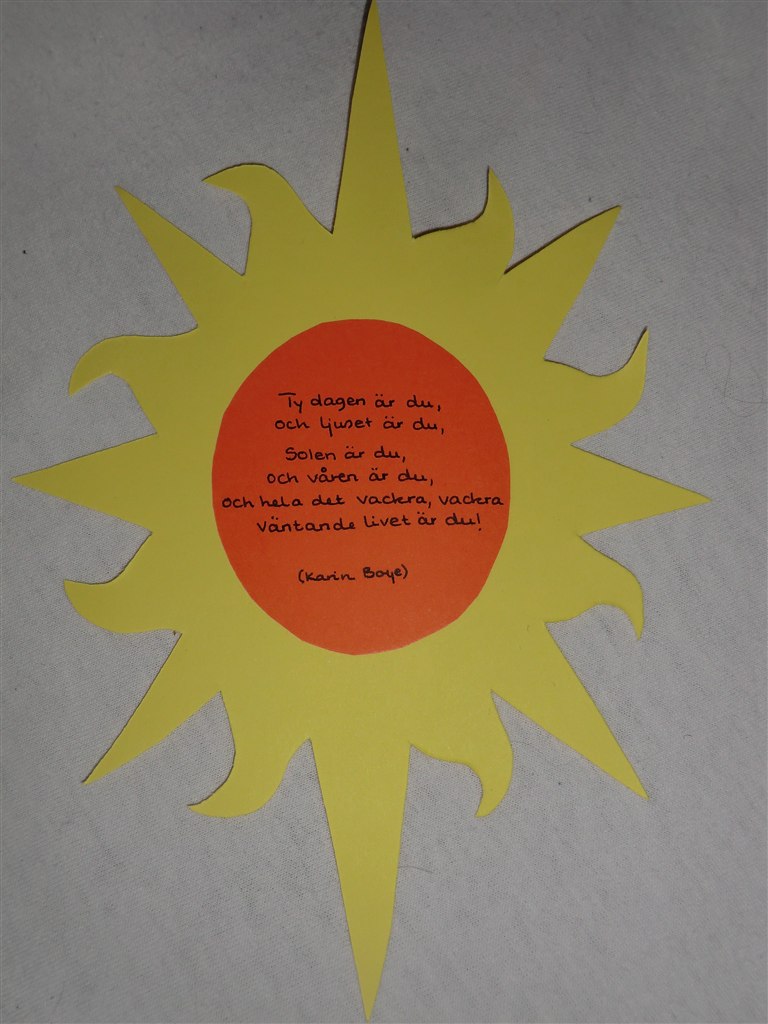 Ty dagen är du,
och ljuset är du,
Solen är du,
och våren är du,
och hela det vackra, vackra
väntande livet är du!
(Karin Boye)